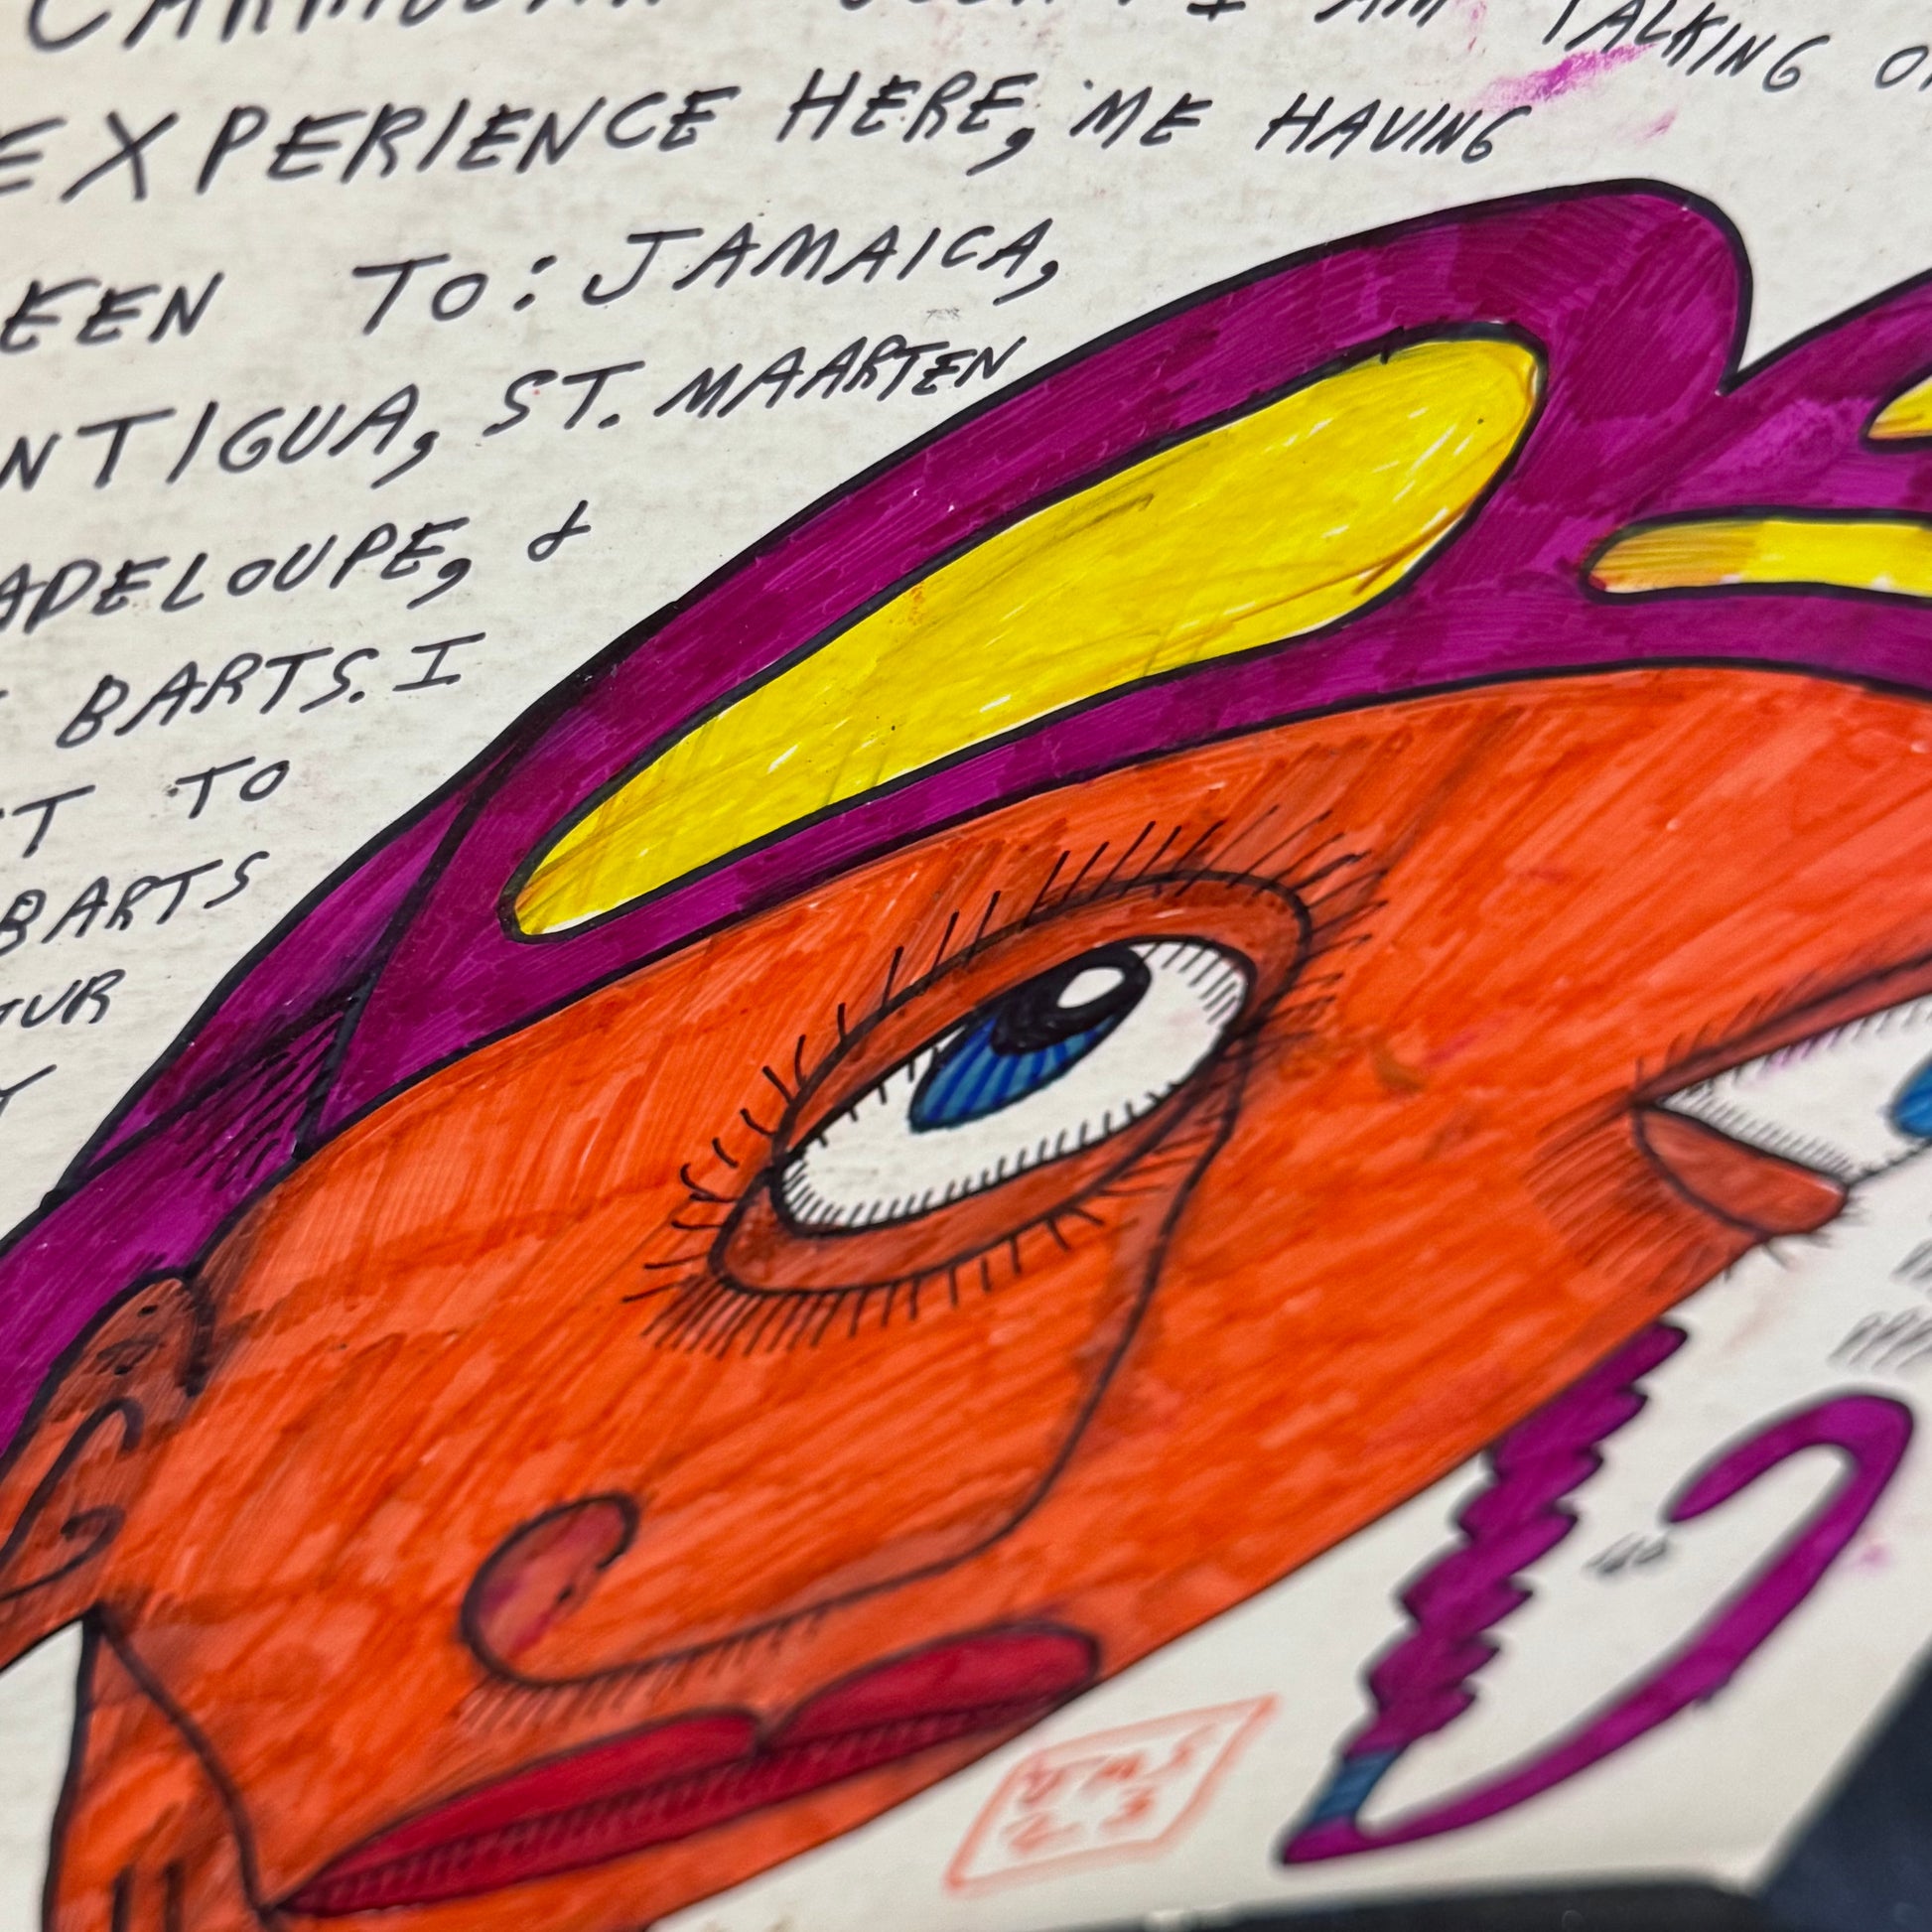 I AM TALKING
EXPERIENCE HERE, ME HAVING
EEN TO: JAMAICA,
NTIGUA, ST. MAARTEN
ADELOUPE, &
BARTS. I
T TO
BARTS
UR